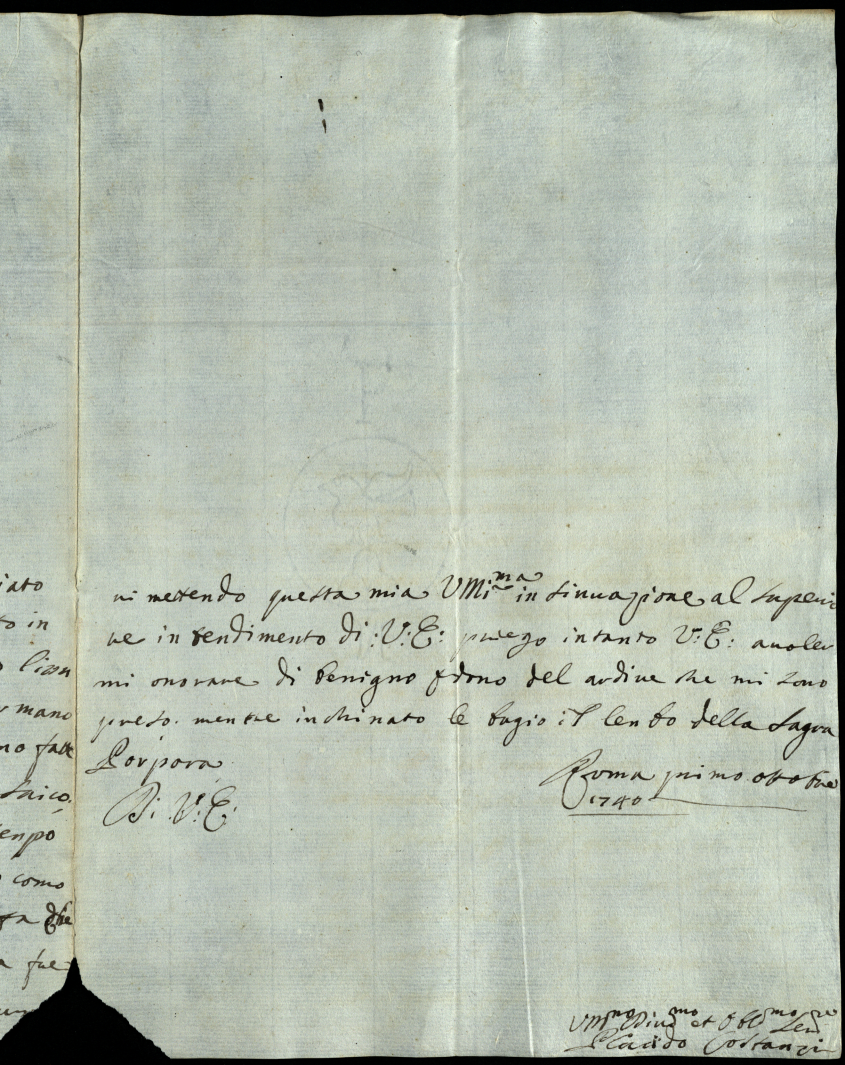 iato
to in
mano
no fatt
enpo
como
fa che
a fu
mi metendo questa mia Umi^ma in sinuazione al superio
re in tendimento di :V:E: priego intanto V:E: a voler
mi onorare di benigno pdono del ardire che mi sono
preso. mentre inchinato le bagio il lenbo della Sagra
Porpora
Di V:E:
Roma primo ottobre
1740
Um^mo Div^mo et Obb^mo Ser^re
Placido Costanzi